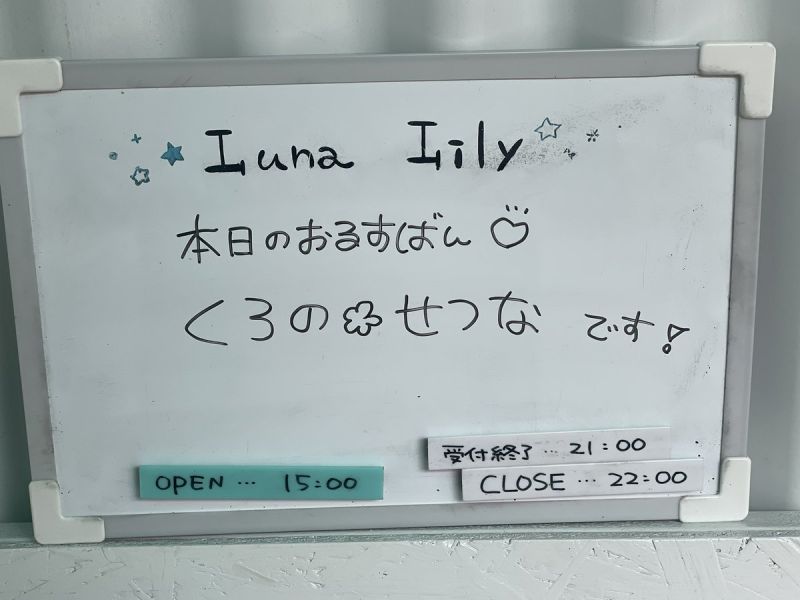 Luna Lily
本日のおるすばん♡
くろの✿せつな です!
受付終了…21:00
OPEN… 15:00
CLOSE…22:00